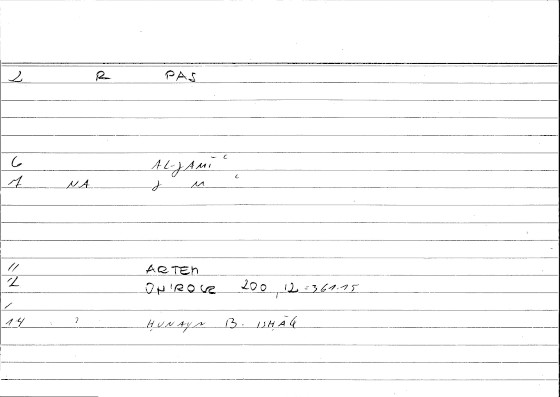 2 R PAS
6 AL-JAMIʿ
7 NA J M ʿ
11 ARTEM
12 ONIROCR 200, 12 = 361.15
14 ? HUNAYN B. ISHĀQ